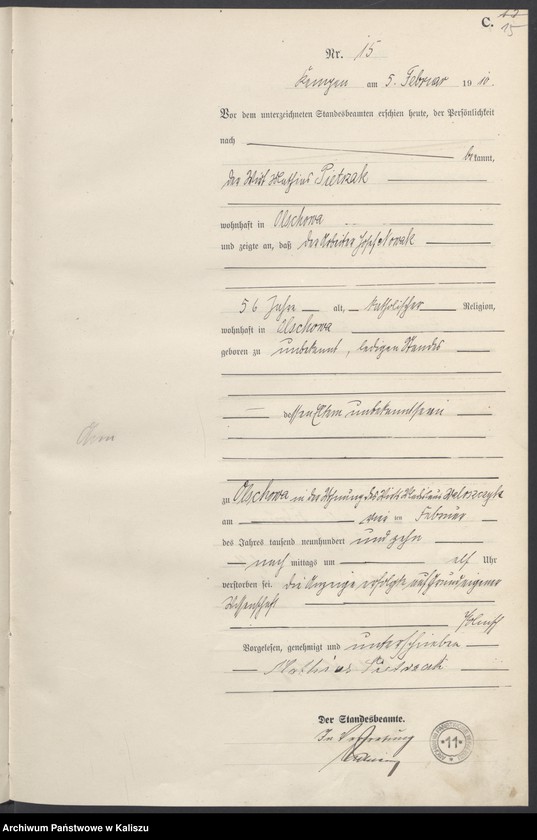 C.
15
Nr. 15
Kempen am 5. Februar 1910.
Vor dem unterzeichneten Standesbeamten erschien heute, der Persönlichkeit
nach
bekannt,
der Wirt Mathias Pietrzak
wohnhaft in Olschowa
und zeigte an, daß der Arbeiter Josef Nowak
56 Jahre alt, katholischer Religion,
wohnhaft in Olschowa
geboren zu unbekannt, ledigen Standes
dessen Eltern unbekannt sein
zu Olschowa in der Wohnung des Wirts
am vier ten Februar
des Jahres tausend neunhundert und zehn
nach mittags um elf Uhr
verstorben sei. Die Anzeige erfolgte auf Grund eigener
Wissenschaft
Vorgelesen, genehmigt und unterschrieben
Mathias Pietrzak
Der Standesbeamte.
In Vertretung
11
Archiwum Państwowe w Kaliszu